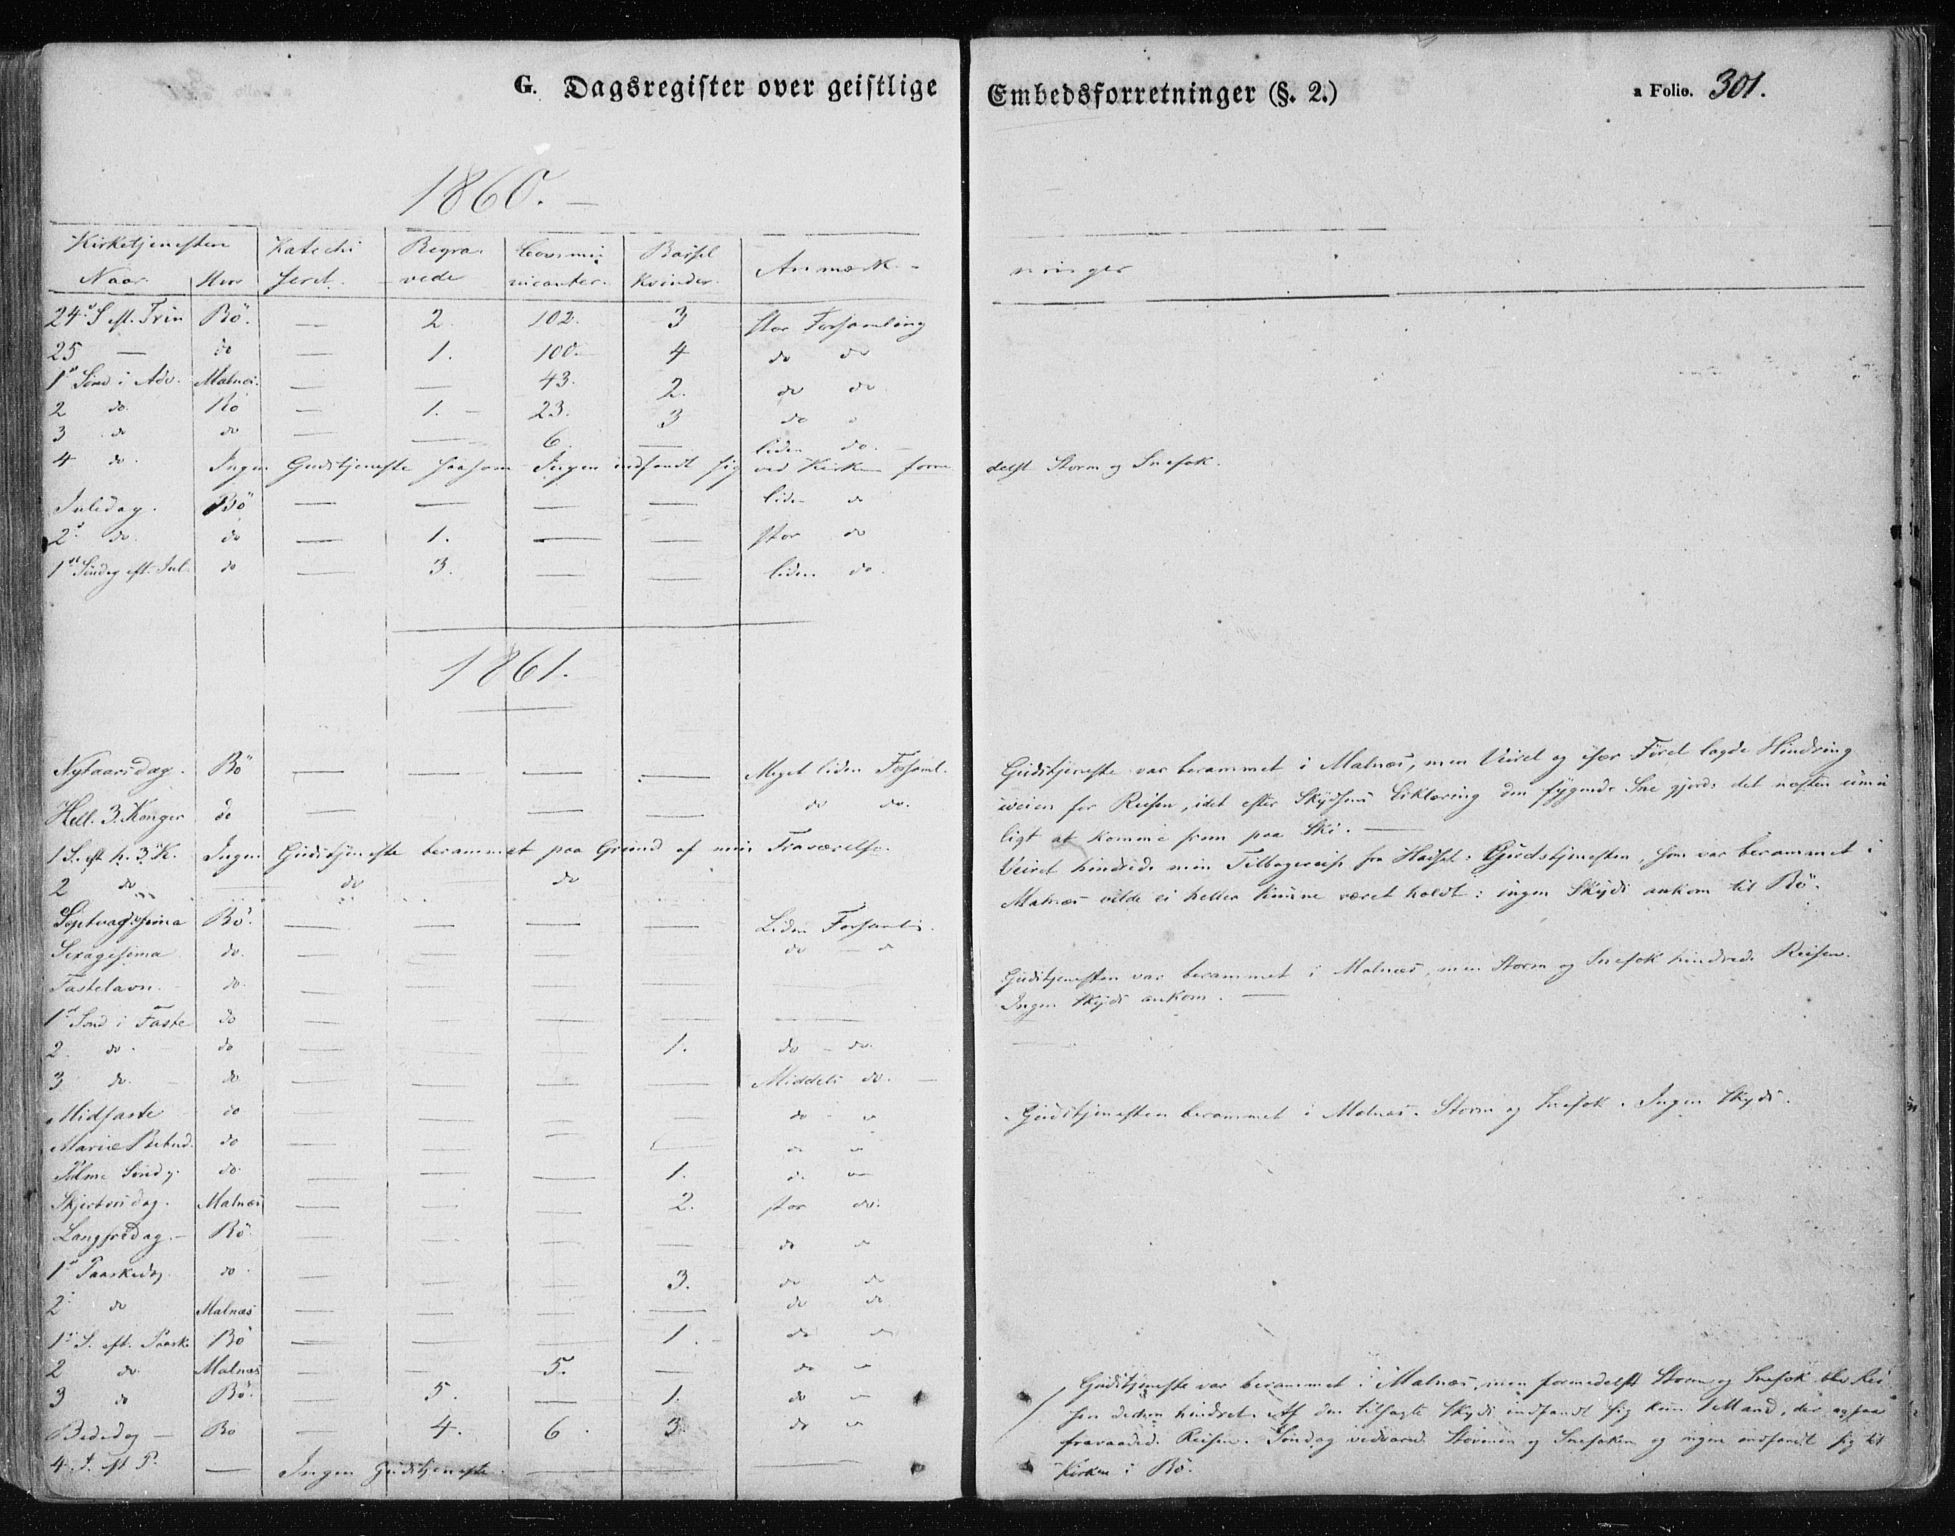 G. Dagsregister over geistlige Embedsforretninger (§. 2.) a Folio. 301.
1860. —
Kirketjenesten Katechi Begra- Commu- Barsel Anmærk-
Naar Hvor seret. vede nicanter. Kvinder.
ninger
24d S. eft. Trin Bö. — 2. 102. 3 stor Forsamling
25 — do — 1. 100. 4 do do
1st Sönd i Adv. Malnæs. — — 43. 2. do do
2 do. Bö — 1. — 23. 3 do
3 do do — — 6. — liden do. —
4 do. Ingen Gudstjeneste saasom Ingen indfandt sig ved Kirken forme delst Storm og Snefok.
Juledag. Bö — — — — liden do
2d do. do — 1. — — stor do
1st Söndag eft. Jul. do — 3. — — liden do.
1861.
Nytaarsdag. Bö — — — — Meget liden Forsaml.
Hell. 3. Konger do — — — — do do.
1 S. eft h. 3. K. Ingen Gudstjeneste berammet paa Grund af min Fraværelse.
2 do do do
Septuagesima Bö. — — — — Liden Forsamli.
Sexagesima do. — — — — do — d
Fastelavn. do. — — — —
1st Sönd i Faste do — — — —
2. do. do — — — 1. do — do.
3 do. do — — — — Middels do. —
Midfaste do — — — — do —
Mariæ Bebud. do — — — —
Palme Söndg. do. — — — 1. d.
Skjertorsdag. Malnæs — — — 2. stor do.
Langfredag. — Bö. — — — — do
1st Paaskedag. do — — — 3. do do
2d do Malnæs — — — — do do
1st S. eft. Paaske Bö — — — 1. do do
2 do. Malnæs — — 5. — do
3 do Bö. — 5. — 1. do
Bededag — Bö — 4. 6. 3 do
4. S. eft P. — Ingen Gudstjeneste.
Gudstjeneste var berammet i Malnæs, men Veiret og især Föret lagde Hindring
iveien for Reisen, idet efter Skydsens Erklæring den fygende Sne gjorde det næsten umu
ligt at komme frem paa Ski. —
Veiret hindrede min Tilbagereise fra Hadsel: Gudstjenesten, som var berammet i
Malnæs vilde ei heller kunne været holdt: ingen Skyds ankom til Bö.
Gudstjenesten var berammet i Malnæs, men Storm og Snefok hindrede Reisen.
Ingen Skyds ankom. —
Gudstjenesten berammet i Malnæs. Storm og Snefok. Ingen Skyds.
Gudstjeneste var berammet i Malnæs, men formedelst Storm og Snefok blev Rei
sen hindret. Af den tilsagte Skyds indfandt sig kun 1 Mand, der ogsaa
fraraadede Reisen. Söndag vedvarede Stormen og Snefoken og ingen indfandt sig til
Kirken i Bö.